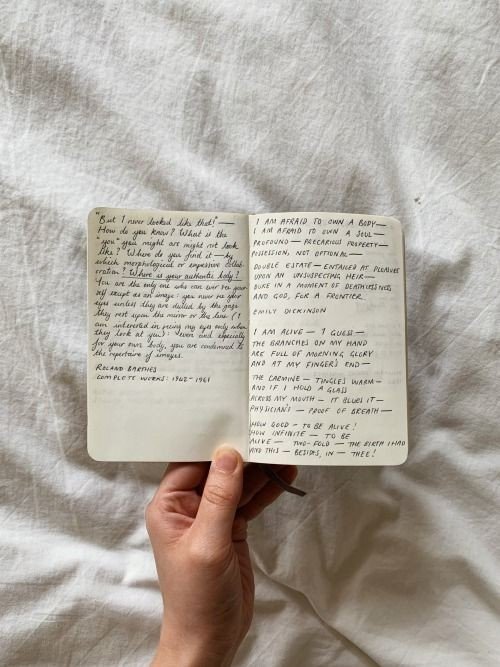 "But I never looked like that!"—
How do you know? What is the
"you" you might or might not look
like? Where do you find it — by
which morphological or expressive calib-
ration? Where is your authentic body?
You are the only one who can ever see your-
self except as an image: you never see your
eyes unless they are dulled by the gaze
they rest upon the mirror or the lens (I
am interested in seeing my eyes only when
they look at you): even and especially
for your own body, you are condemned to
the repertoire of images.
ROLAND BARTHES
COMPLETE WORKS: 1942 - 1961
I AM AFRAID TO OWN A BODY—
I AM AFRAID TO OWN A SOUL—
PROFOUND — PRECARIOUS PROPERTY—
POSSESSION, NOT OPTIONAL—
DOUBLE ESTATE — ENTAILED AT PLEASURE
UPON AN UNSUSPECTING HEIR—
DUKE IN A MOMENT OF DEATHLESSNESS
AND GOD, FOR A FRONTIER.
EMILY DICKINSON
I AM ALIVE — I GUESS—
THE BRANCHES ON MY HAND
ARE FULL OF MORNING GLORY
AND AT MY FINGER'S END—
THE CARMINE — TINGLES WARM—
AND IF I HOLD A GLASS
ACROSS MY MOUTH — IT BLURS IT—
PHYSICIAN'S — PROOF OF BREATH—
HOW GOOD — TO BE ALIVE!
HOW INFINITE — TO BE
ALIVE — TWO-FOLD — THE BIRTH I HAD
AND THIS — BESIDES, IN — THEE!